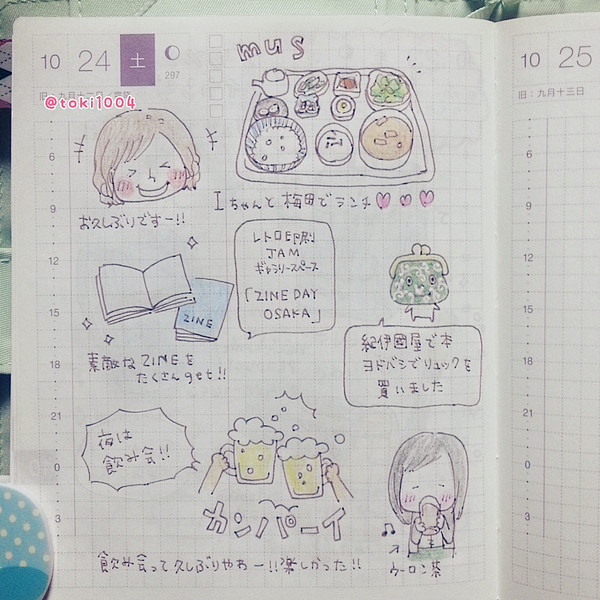 10 24 土
297
@toki1004
mus
10 25
旧:九月十三日
6
9
12
15
18
21
0
3
Iちゃんと梅田でランチ
お久しぶりですー!!
レトロ印刷
JAM
ギャラリースペース
「ZINE DAY
OSAKA」
ZINE
素敵なZINEを
たくさんget!!
紀伊國屋で本
ヨドバシでリュックを
買いました
夜は
飲み会!!
カンパーイ
ウーロン茶
飲み会って久しぶりやわー!!楽しかった!!